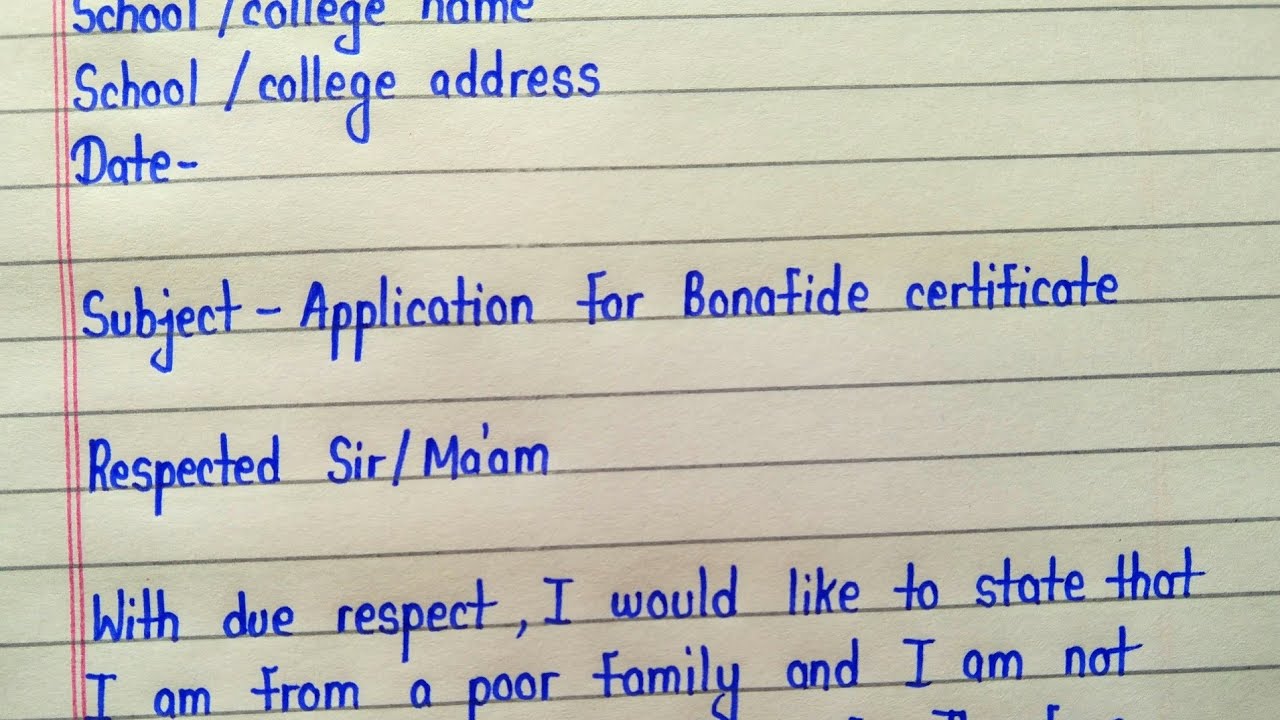 School /college name
School /college address
Date-
Subject - Application for Bonafide certificate
Respected Sir/Ma'am
With due respect, I would like to state that
I am from a poor family and I am not